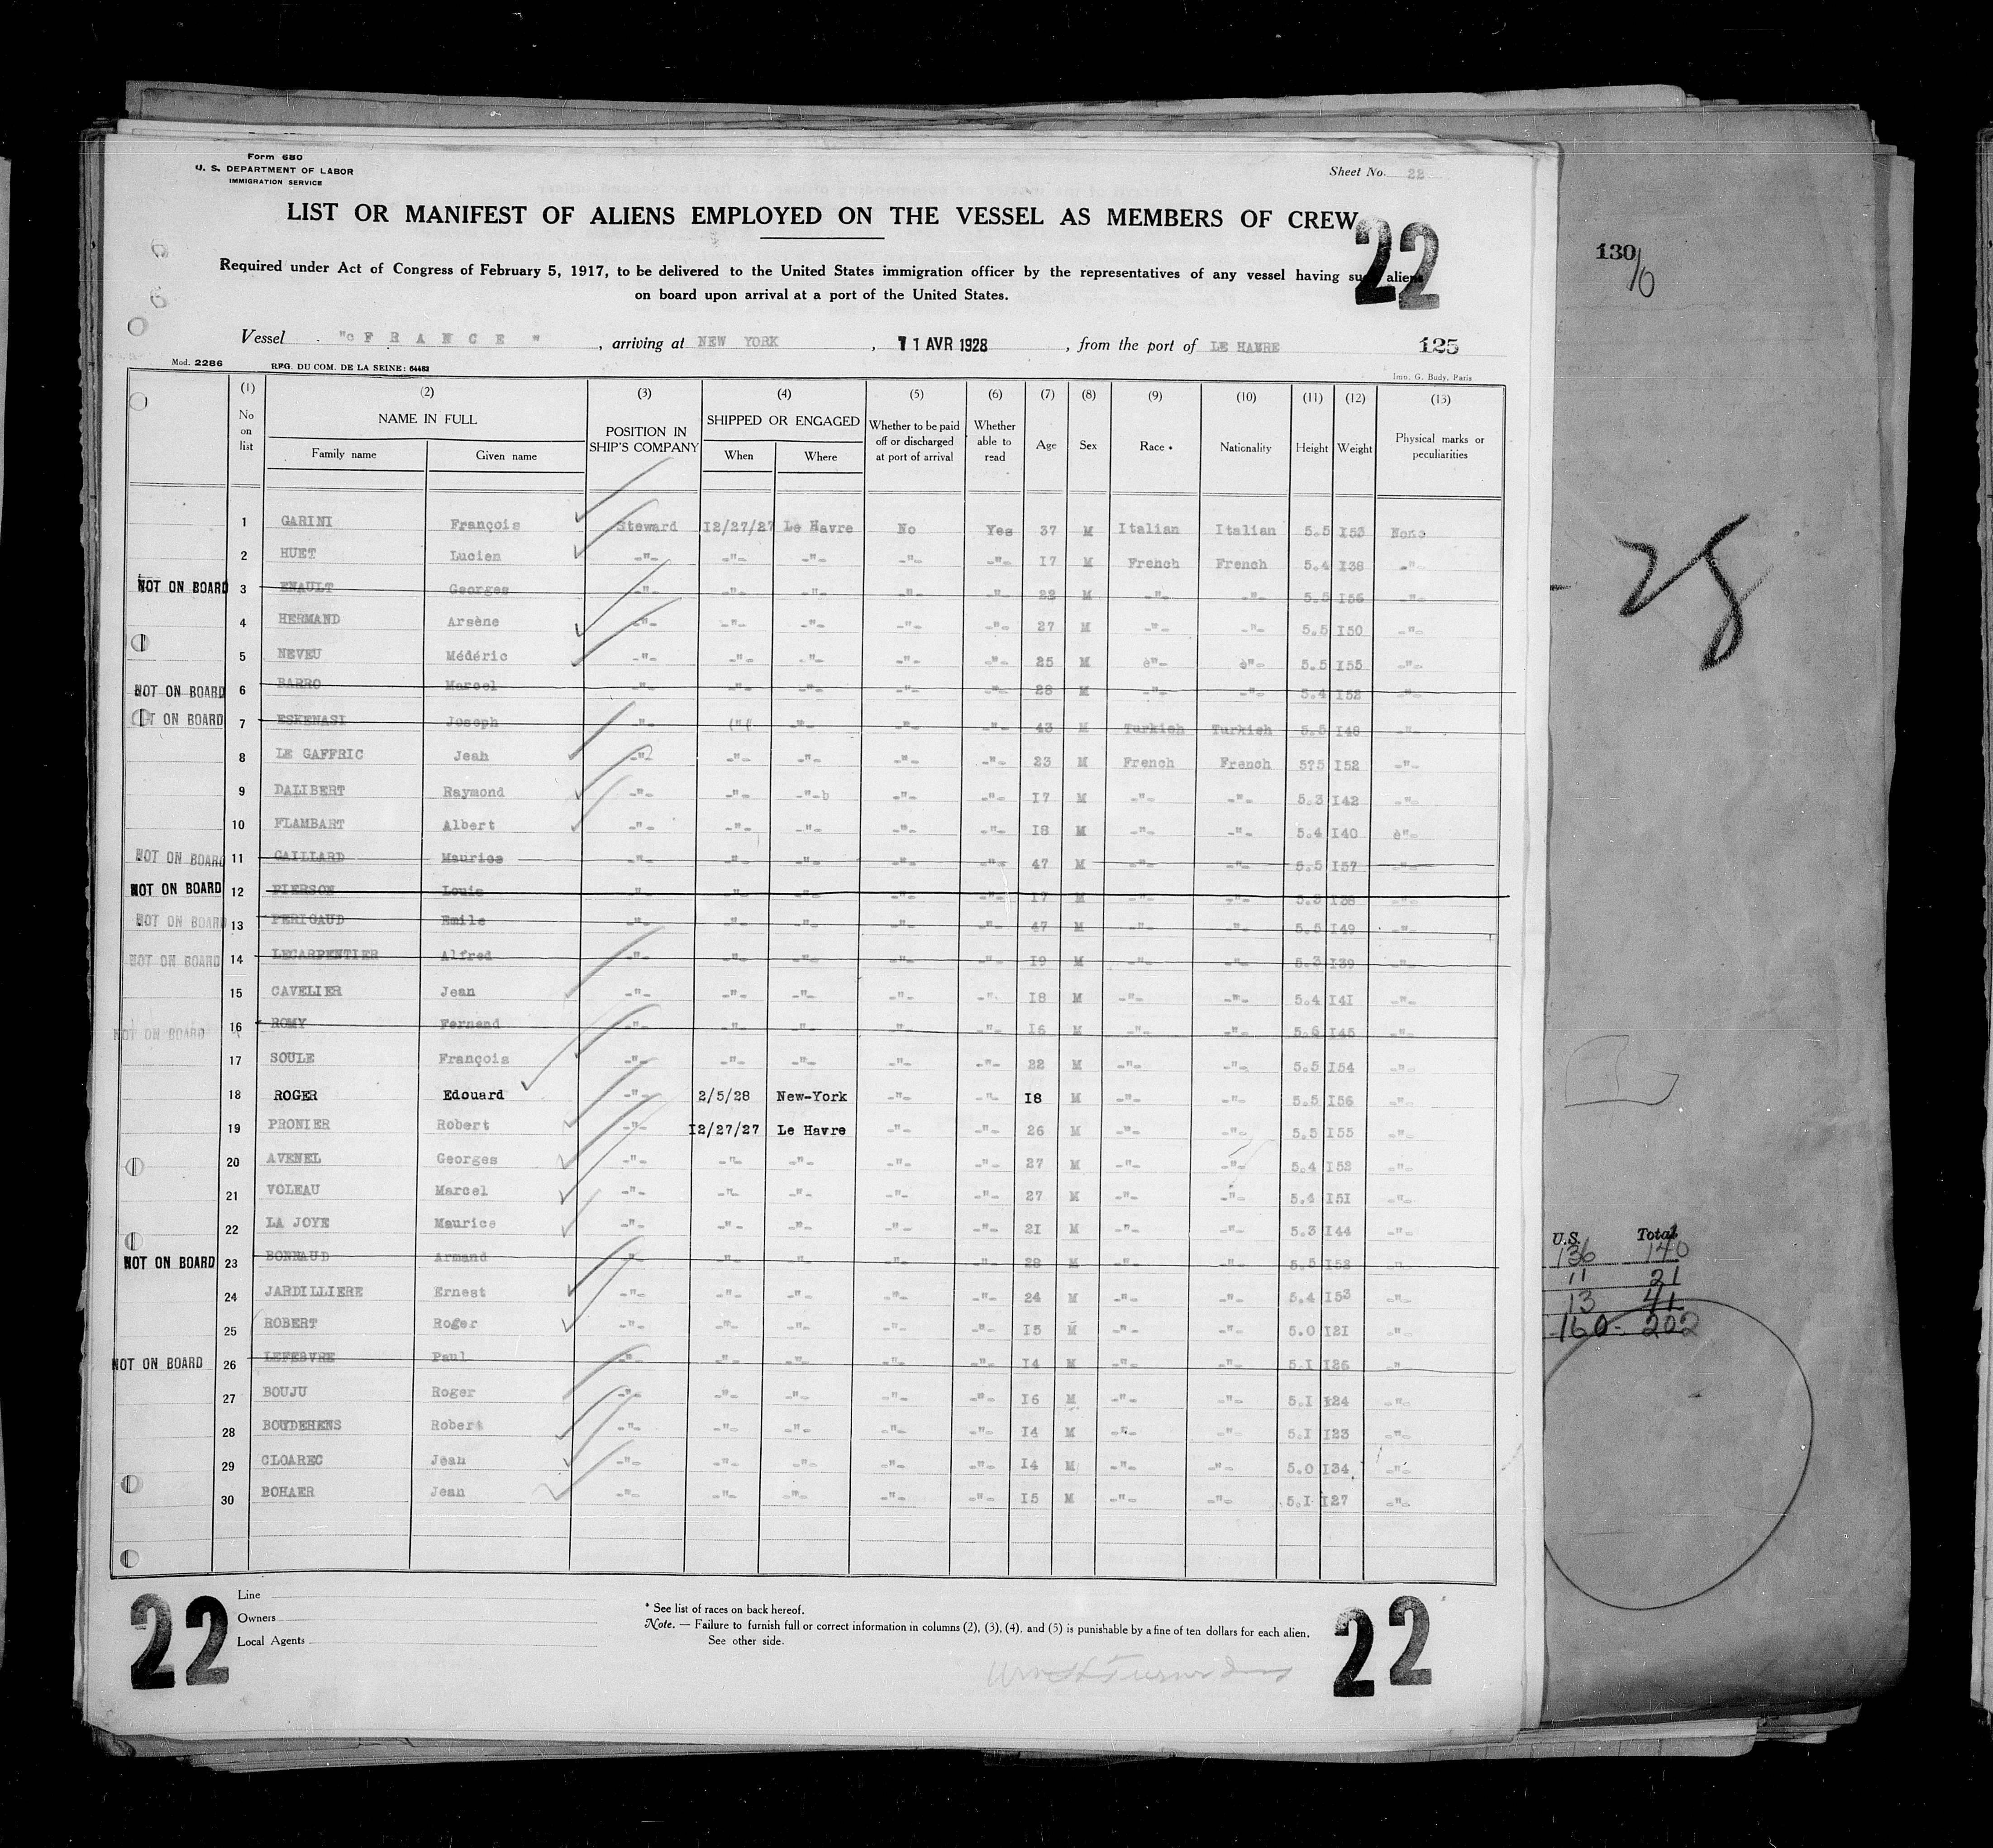 Form 680
U. S. DEPARTMENT OF LABOR
IMMIGRATION SERVICE
Sheet No. 22
LIST OR MANIFEST OF ALIENS EMPLOYED ON THE VESSEL AS MEMBERS OF CREW
22
Required under Act of Congress of February 5, 1917, to be delivered to the United States immigration officer by the representatives of any vessel having such aliens
on board upon arrival at a port of the United States.
Vessel "c F R A N C E ", arriving at NEW YORK, 11 AVR 1928, from the port of LE HAVRE 125
Mod. 2286 REG. DU COM. DE LA SEINE: 64482 Imp. G. Body, Paris
(1) (2) (3) (4) (5) (6) (7) (8) (9) (10) (11) (12) (13)
No on list NAME IN FULL Family name Given name POSITION IN SHIP'S COMPANY SHIPPED OR ENGAGED When Where Whether to be paid off or discharged at port of arrival Whether able to read Age Sex Race * Nationality Height Weight Physical marks or peculiarities
1 GARINI François Steward 12/27/27 Le Havre No Yes 37 M Italian Italian 5.5 153 None
2 HUET Lucien -"- -"- -"- -"- -"- 17 M French French 5.4 138 -"-
NOT ON BOARD 3 ENAULT Georges -"- -"- -"- -"- -"- 22 M -"- -"- 5.5 156 -"-
4 HERMAND Arsène -"- -"- -"- -"- -"- 27 M -"- -"- 5.5 150 -"-
5 NEVEU Médéric -"- -"- -"- -"- -"- 25 M è"- è"- 5.5 155 -"-
NOT ON BOARD 6 BARRO Marcel -"- -"- -"- -"- -"- 28 M -"- -"- 5.4 152 -"-
NOT ON BOARD 7 ESKENASI Joseph -"- ("( -"- -"- -"- 43 M Turkish Turkish 5.5 148 -"-
8 LE GAFFRIC Jean -"- -"- -"- -"- -"- 23 M French French 575 152 -"-
9 DALIBERT Raymond -"- -"- -"-b -"- -"- 17 M -"- -"- 5.3 142 -"-
10 FLAMBART Albert -"- -"- -"- -"- -"- 18 M -"- -"- 5.4 140 è"-
NOT ON BOARD 11 CAILLARD Maurice -"- -"- -"- -"- -"- 47 M -"- -"- 5.5 157 -"-
NOT ON BOARD 12 PIERSON Louis -"- -"- -"- -"- -"- 17 M -"- -"- 5.3 138 -"-
NOT ON BOARD 13 PERIGAUD Emile -"- -"- -"- -"- -"- 47 M -"- -"- 5.5 149 -"-
NOT ON BOARD 14 LECARPENTIER Alfred -"- -"- -"- -"- -"- 19 M -"- -"- 5.3 139 -"-
15 CAVELIER Jean -"- -"- -"- -"- -"- 18 M -"- -"- 5.4 141 -"-
NOT ON BOARD 16 ROMY Fernand -"- -"- -"- -"- -"- 16 M -"- -"- 5.6 145 -"-
17 SOULE François -"- -"- -"- -"- -"- 22 M -"- -"- 5.5 154 -"-
18 ROGER Edouard -"- 2/5/28 New-York -"- -"- 18 M -"- -"- 5.5 156 -"-
19 PRONIER Robert -"- 12/27/27 Le Havre -"- -"- 26 M -"- -"- 5.5 155 -"-
20 AVENEL Georges -"- -"- -"- -"- -"- 27 M -"- -"- 5.4 152 -"-
21 VOLEAU Marcel -"- -"- -"- -"- -"- 27 M -"- -"- 5.4 151 -"-
22 LA JOYE Maurice -"- -"- -"- -"- -"- 21 M -"- -"- 5.3 144 -"-
NOT ON BOARD 23 BONNAUD Armand -"- -"- -"- -"- -"- 28 M -"- -"- 5.5 152 -"-
24 JARDILLIERE Ernest -"- -"- -"- -"- -"- 24 M -"- -"- 5.4 153 -"-
25 ROBERT Roger -"- -"- -"- -"- -"- 15 M -"- -"- 5.0 121 -"-
NOT ON BOARD 26 LEFEBVRE Paul -"- -"- -"- -"- -"- 14 M -"- -"- 5.1 126 -"-
27 BOUJU Roger -"- -"- -"- -"- -"- 16 M -"- -"- 5.1 124 -"-
28 BOUDEHENS Robert -"- -"- -"- -"- -"- 14 M -"- -"- 5.1 123 -"-
29 CLOAREC Jean -"- -"- -"- -"- -"- 14 M -"- -"- 5.0 134 -"-
30 BOHAER Jean -"- -"- -"- -"- -"- 15 M -"- -"- 5.1 127 -"-
22
Line
Owners
Local Agents
* See list of races on back hereof.
Note. — Failure to furnish full or correct information in columns (2), (3), (4), and (5) is punishable by a fine of ten dollars for each alien.
See other side.
22
130
28
U.S. Total
136 140
11 21
13 41
160 - 202